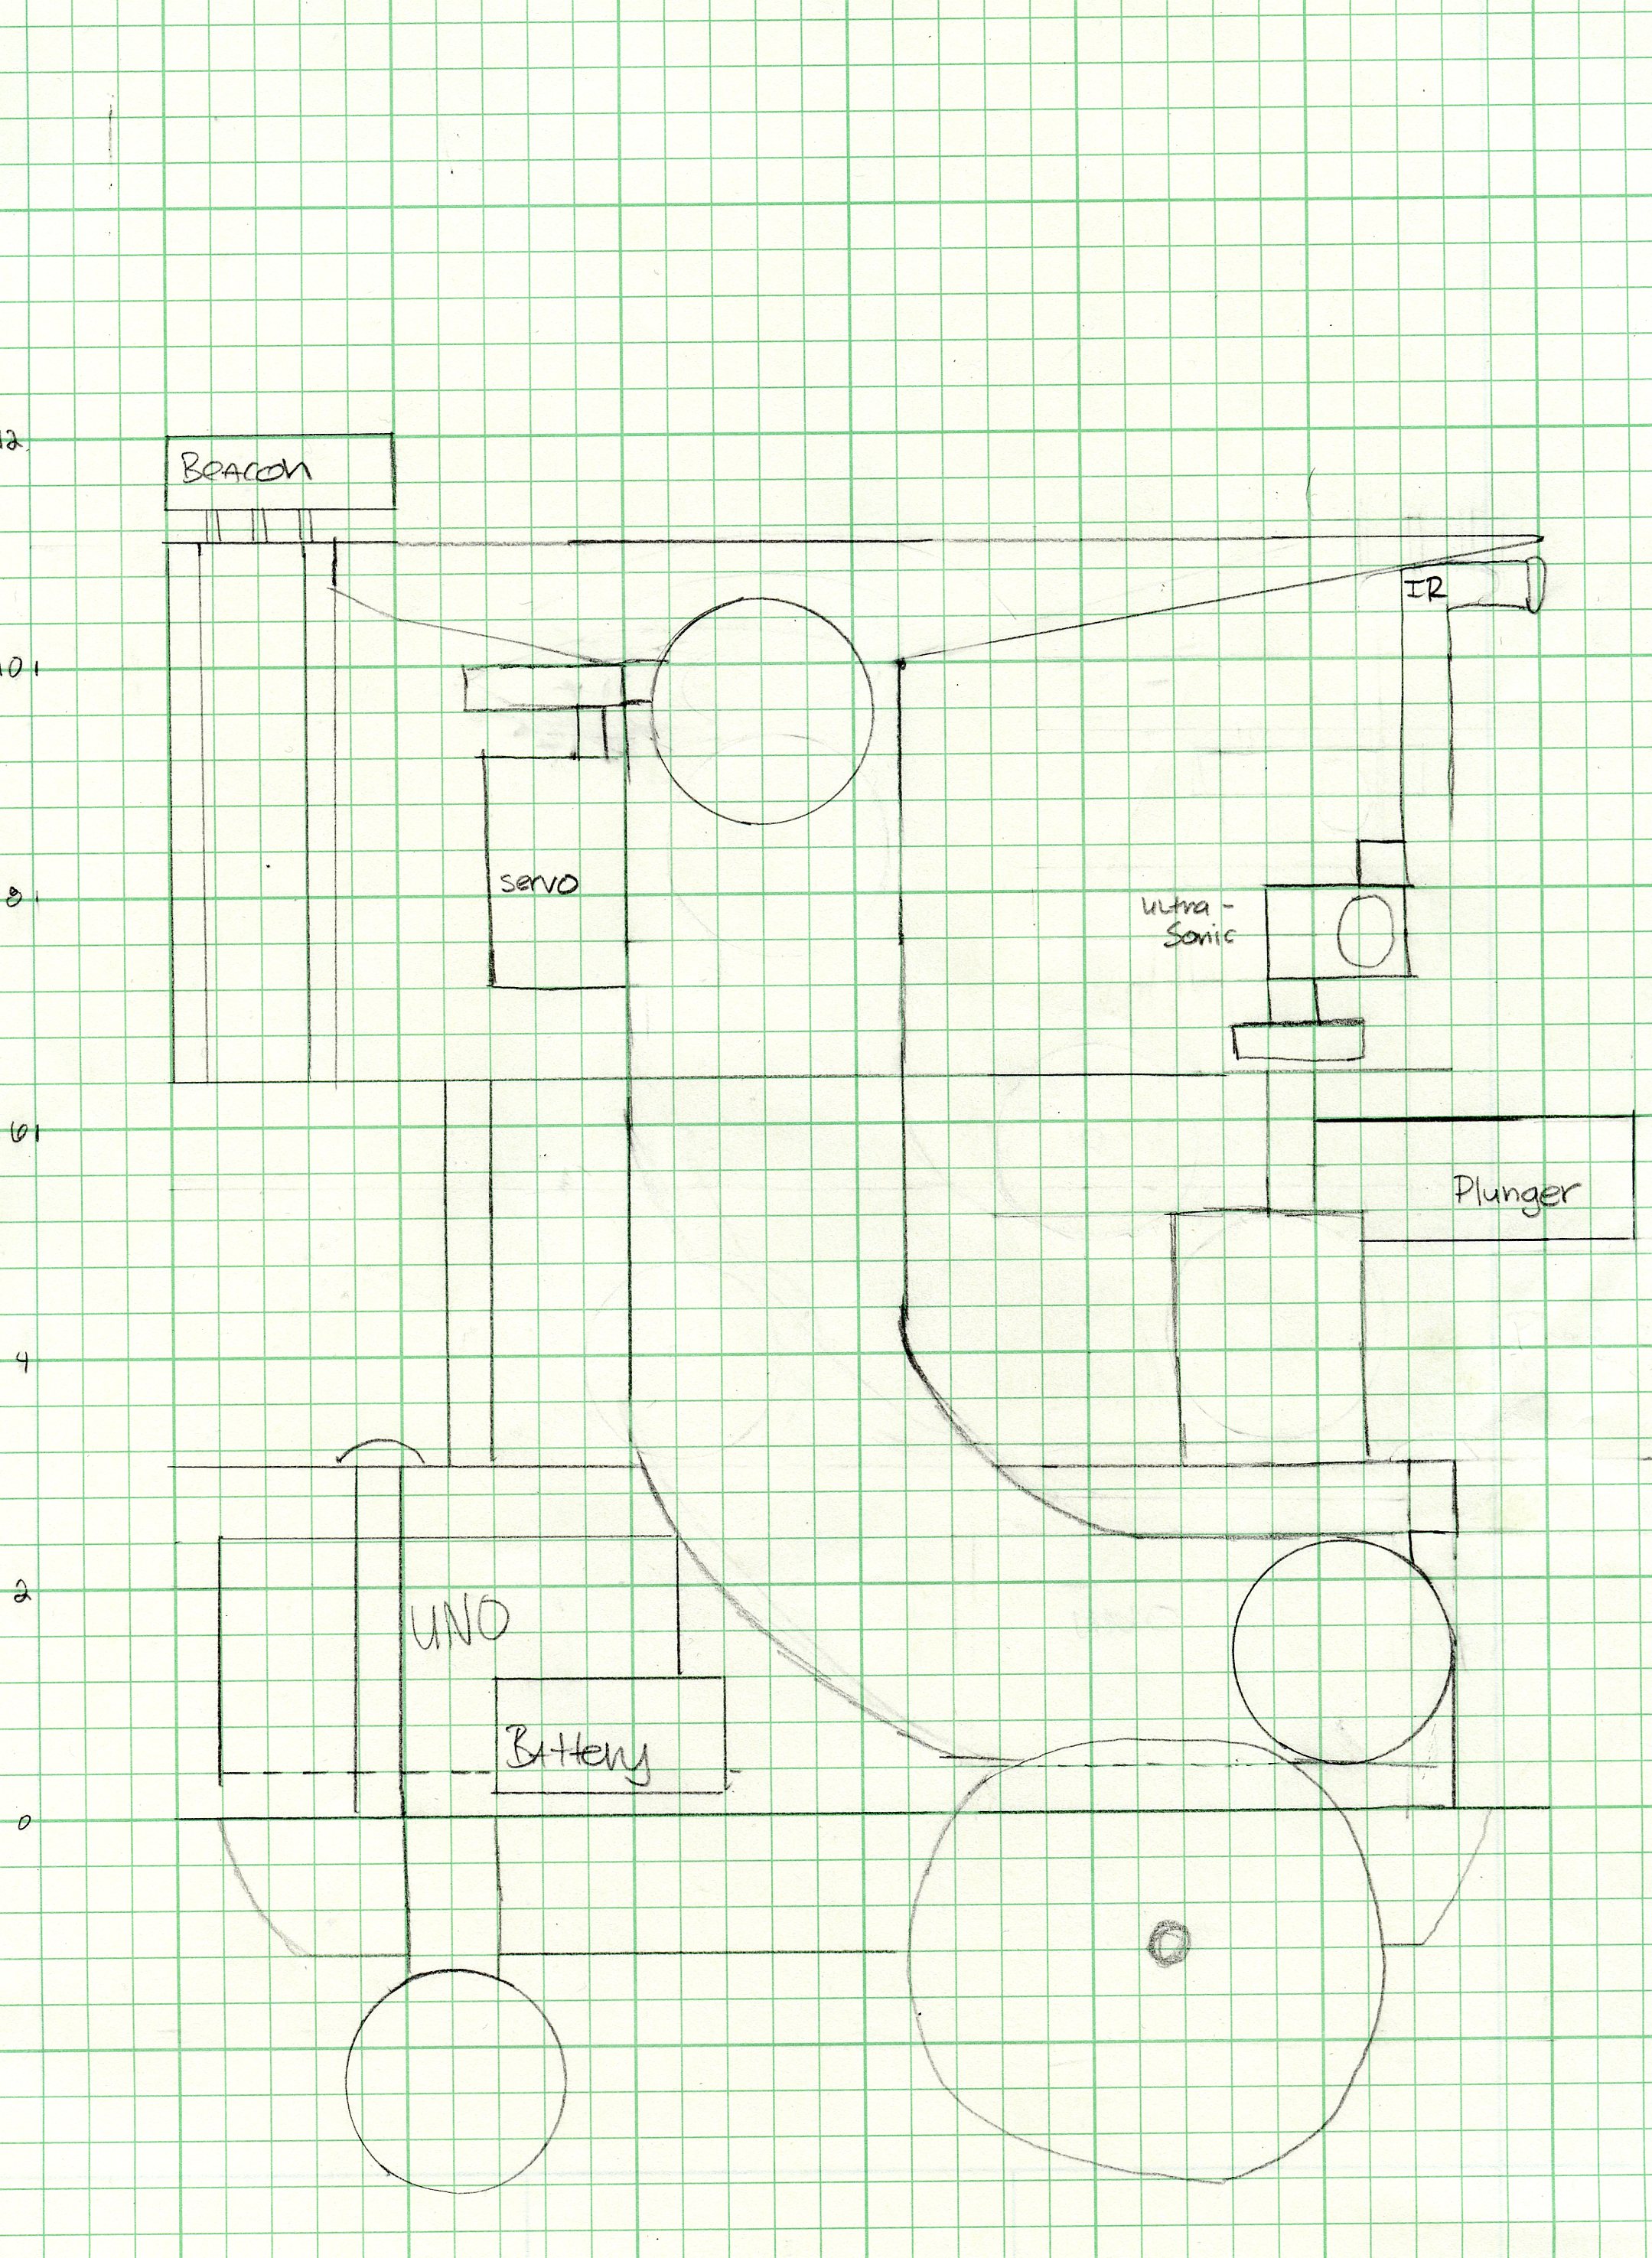 12
Beacon
10
IR
servo
8
ultra-
Sonic
6
Plunger
4
2
UNO
Battery
0